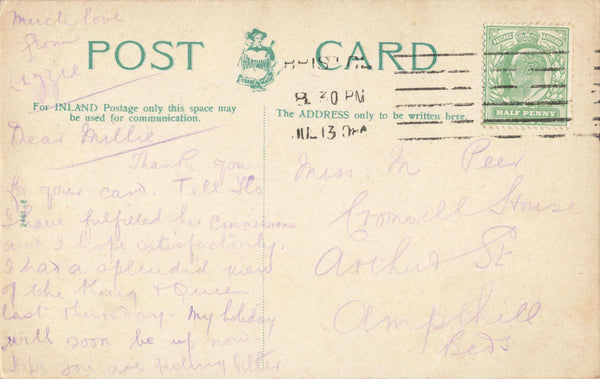 Much love
from
Lizzie
POST CARD
For INLAND Postage only this space may
be used for communication.
The ADDRESS only to be written here.
BRISTOL
8. 30 PM
JUL 13
HALF PENNY
Dear Millie
Thank you
for your card. Tell Flo
I have fulfilled her commissions
and I hope satisfactorily.
I had a splendid view
of the King & Queen
last Thursday. My holiday
will soon be up now
Hope you are feeling better
Miss. M Peer
Cromwell House
Arthur St
Ampthill
Beds